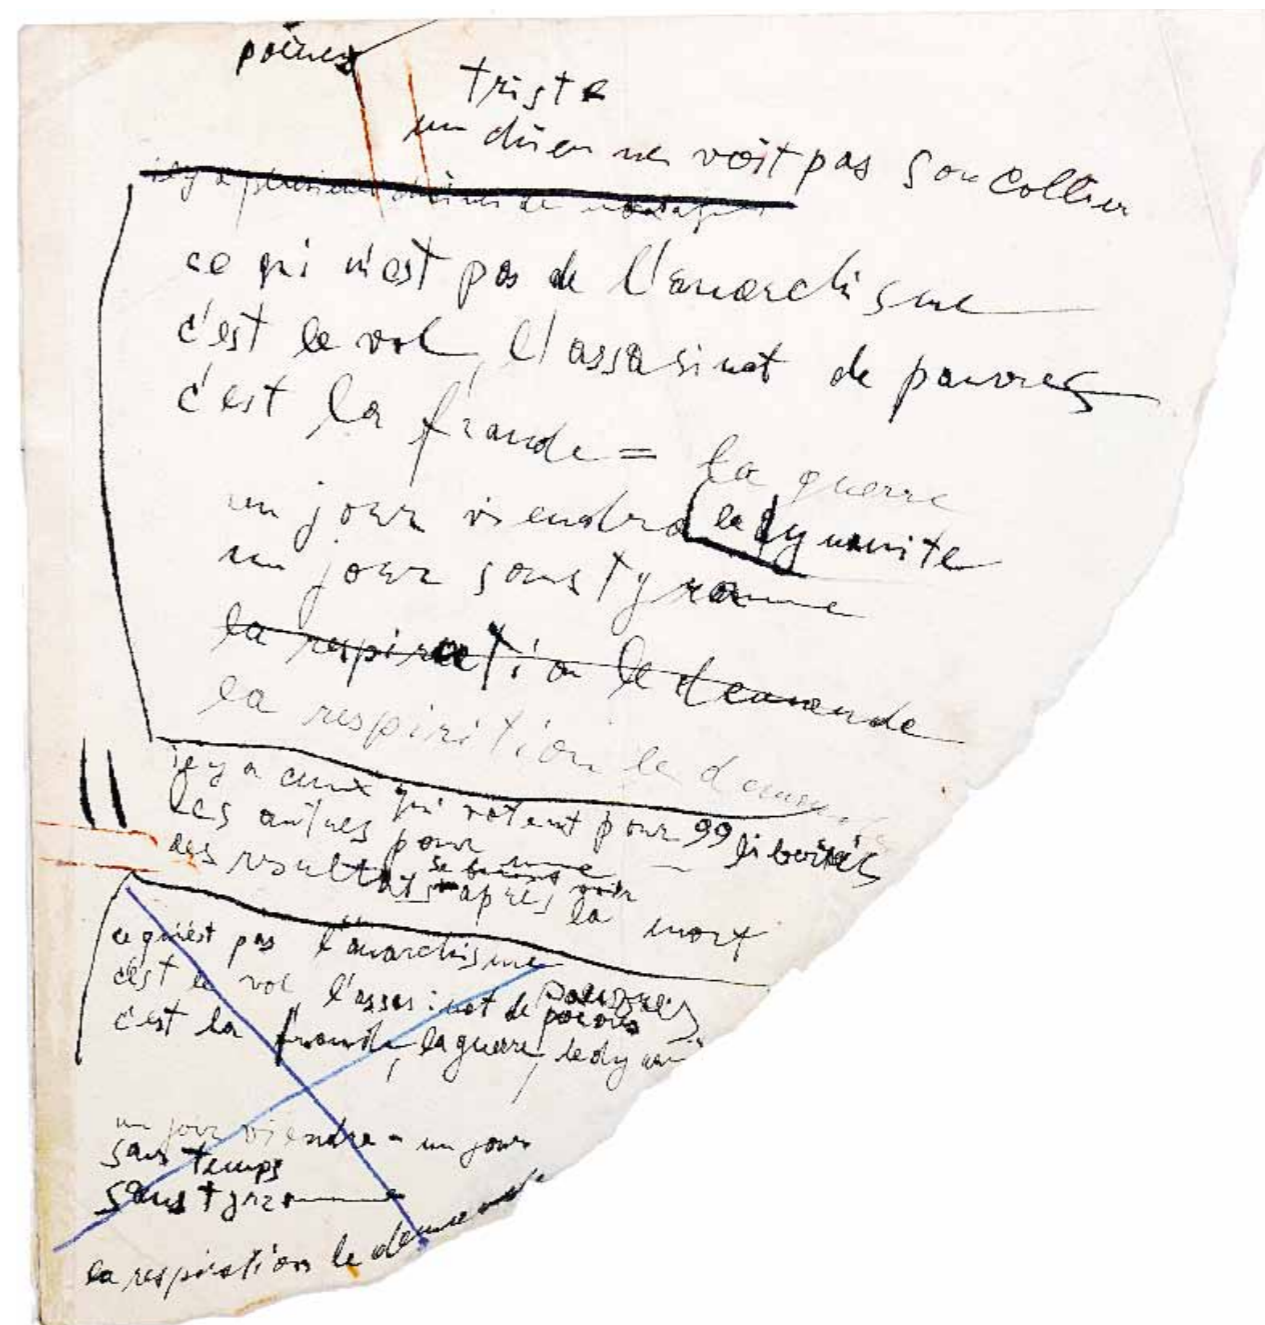 triste
un chien ne voit pas son collier
il y a plusieurs de
ce qui n'est pas de l'anarchisme
c'est le vol, l'assasinat de pauvres
c'est la fraude = la guerre
un jour viendra la dynamite
un jour sans tyranne
la respiration le demande
la respirition le deman
il y a ceux qui votent pour 99 libertés
les autres pour
se voir
des resultats après la mort
ce qui est pas l'anarchisme
c'est le vol l'assasinat de pauvres
pauvres
c'est la fraude, la guerre, le dynami
un jour viendra - un jour
sans temps
sans tyranne
la respiration le demande